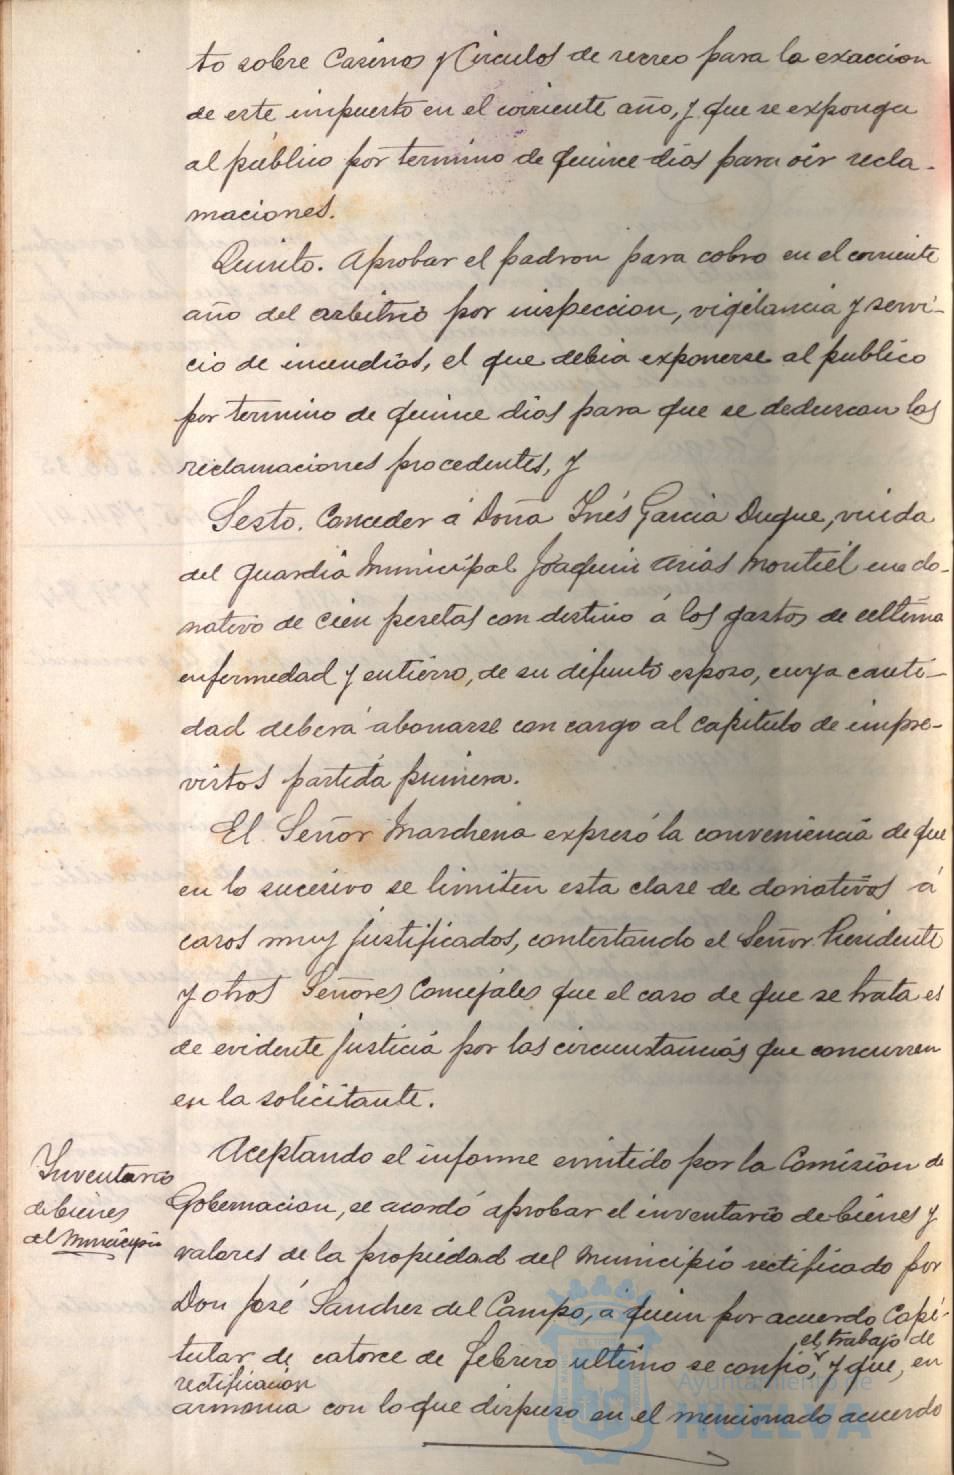 to sobre Casinos y Circulos de recreo para la exaccion
de este impuesto en el corriente año, y que se exponga
al público por termino de quince dias para oir recla-
maciones.
Quinto. Aprobar el padron para cobro en el corriente
año del arbitrio por inspeccion, vigilancia y servi-
cio de incendios, el que debia exponerse al publico
por termino de quince dias para que se deduzcan las
reclamaciones procedentes, y
Sesto. Conceder á Doña Inés Garcia Duque, viuda
del guardia Municipal Joaquin Arias Montiel un do-
nativo de cien pesetas con destino á los gastos de ultima
enfermedad y entierro, de su difunto esposo, cuya canti-
dad deberá abonarse con cargo al capitulo de impre-
vistos partida primera.
El Señor Marchena expresó la conveniencia de que
en lo sucesivo se limiten esta clase de donativos á
casos muy justificados, contestando el Señor Presidente
y otros Señores Concejales que el caso de que se trata es
de evidente justicia por las circunstancias que concurren
en la solicitante.
Inventario
de bienes
del Municipio
Aceptando el informe emitido por la Comision de
Gobernacion, se acordó aprobar el inventario de bienes y
valores de la propiedad del Municipio rectificado por
Don José Sanchez del Campo, a quien por acuerdo Capi-
tular de catorce de febrero ultimo se confió el trabajo de
rectificacion y que, en
armonia con lo que dispuso en el mencionado acuerdo
Ayuntamiento de
HUELVA